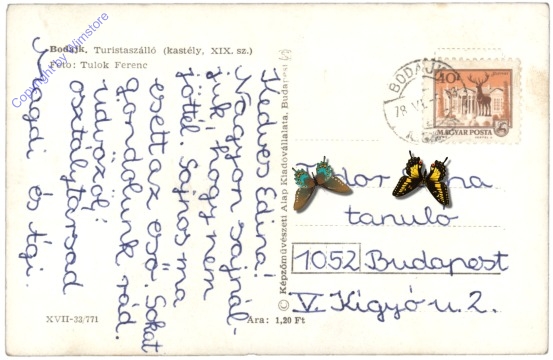 Bodajk, Turistaszálló (kastély, XIX. sz.)
Foto: Tulok Ferenc
Copyright by Filmstore
Kedves Edina!
Nagyon sajnál-
juk, hogy nem
jöttél. Sajnos ma
esett az eső. Sokat
gondolunk rád.
üdvözöl:
osztálytársad
Magdi és Ági.
XVII-33/771
Ára: 1,20 Ft
© Képzőművészeti Alap Kiadóvállalata, Budapest
BODAJK
78 VI.
40 f
MAGYAR POSTA
tanuló
1052 Budapest
V. Kígyó u. 2.